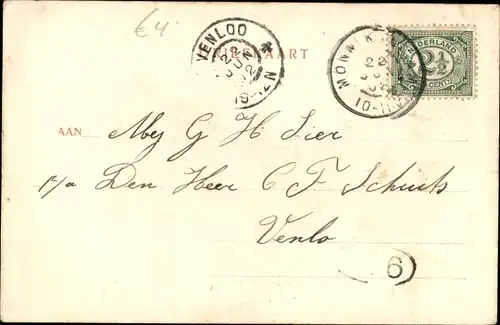 €4
VENLOO
22 JUN 02
10-12N
BRIEFKAART
MONNIK
22
10-11V
NEDERLAND
2½
CENT
AAN Mej G H Sier
p/a Den Heer C F Schuits
Venlo
6